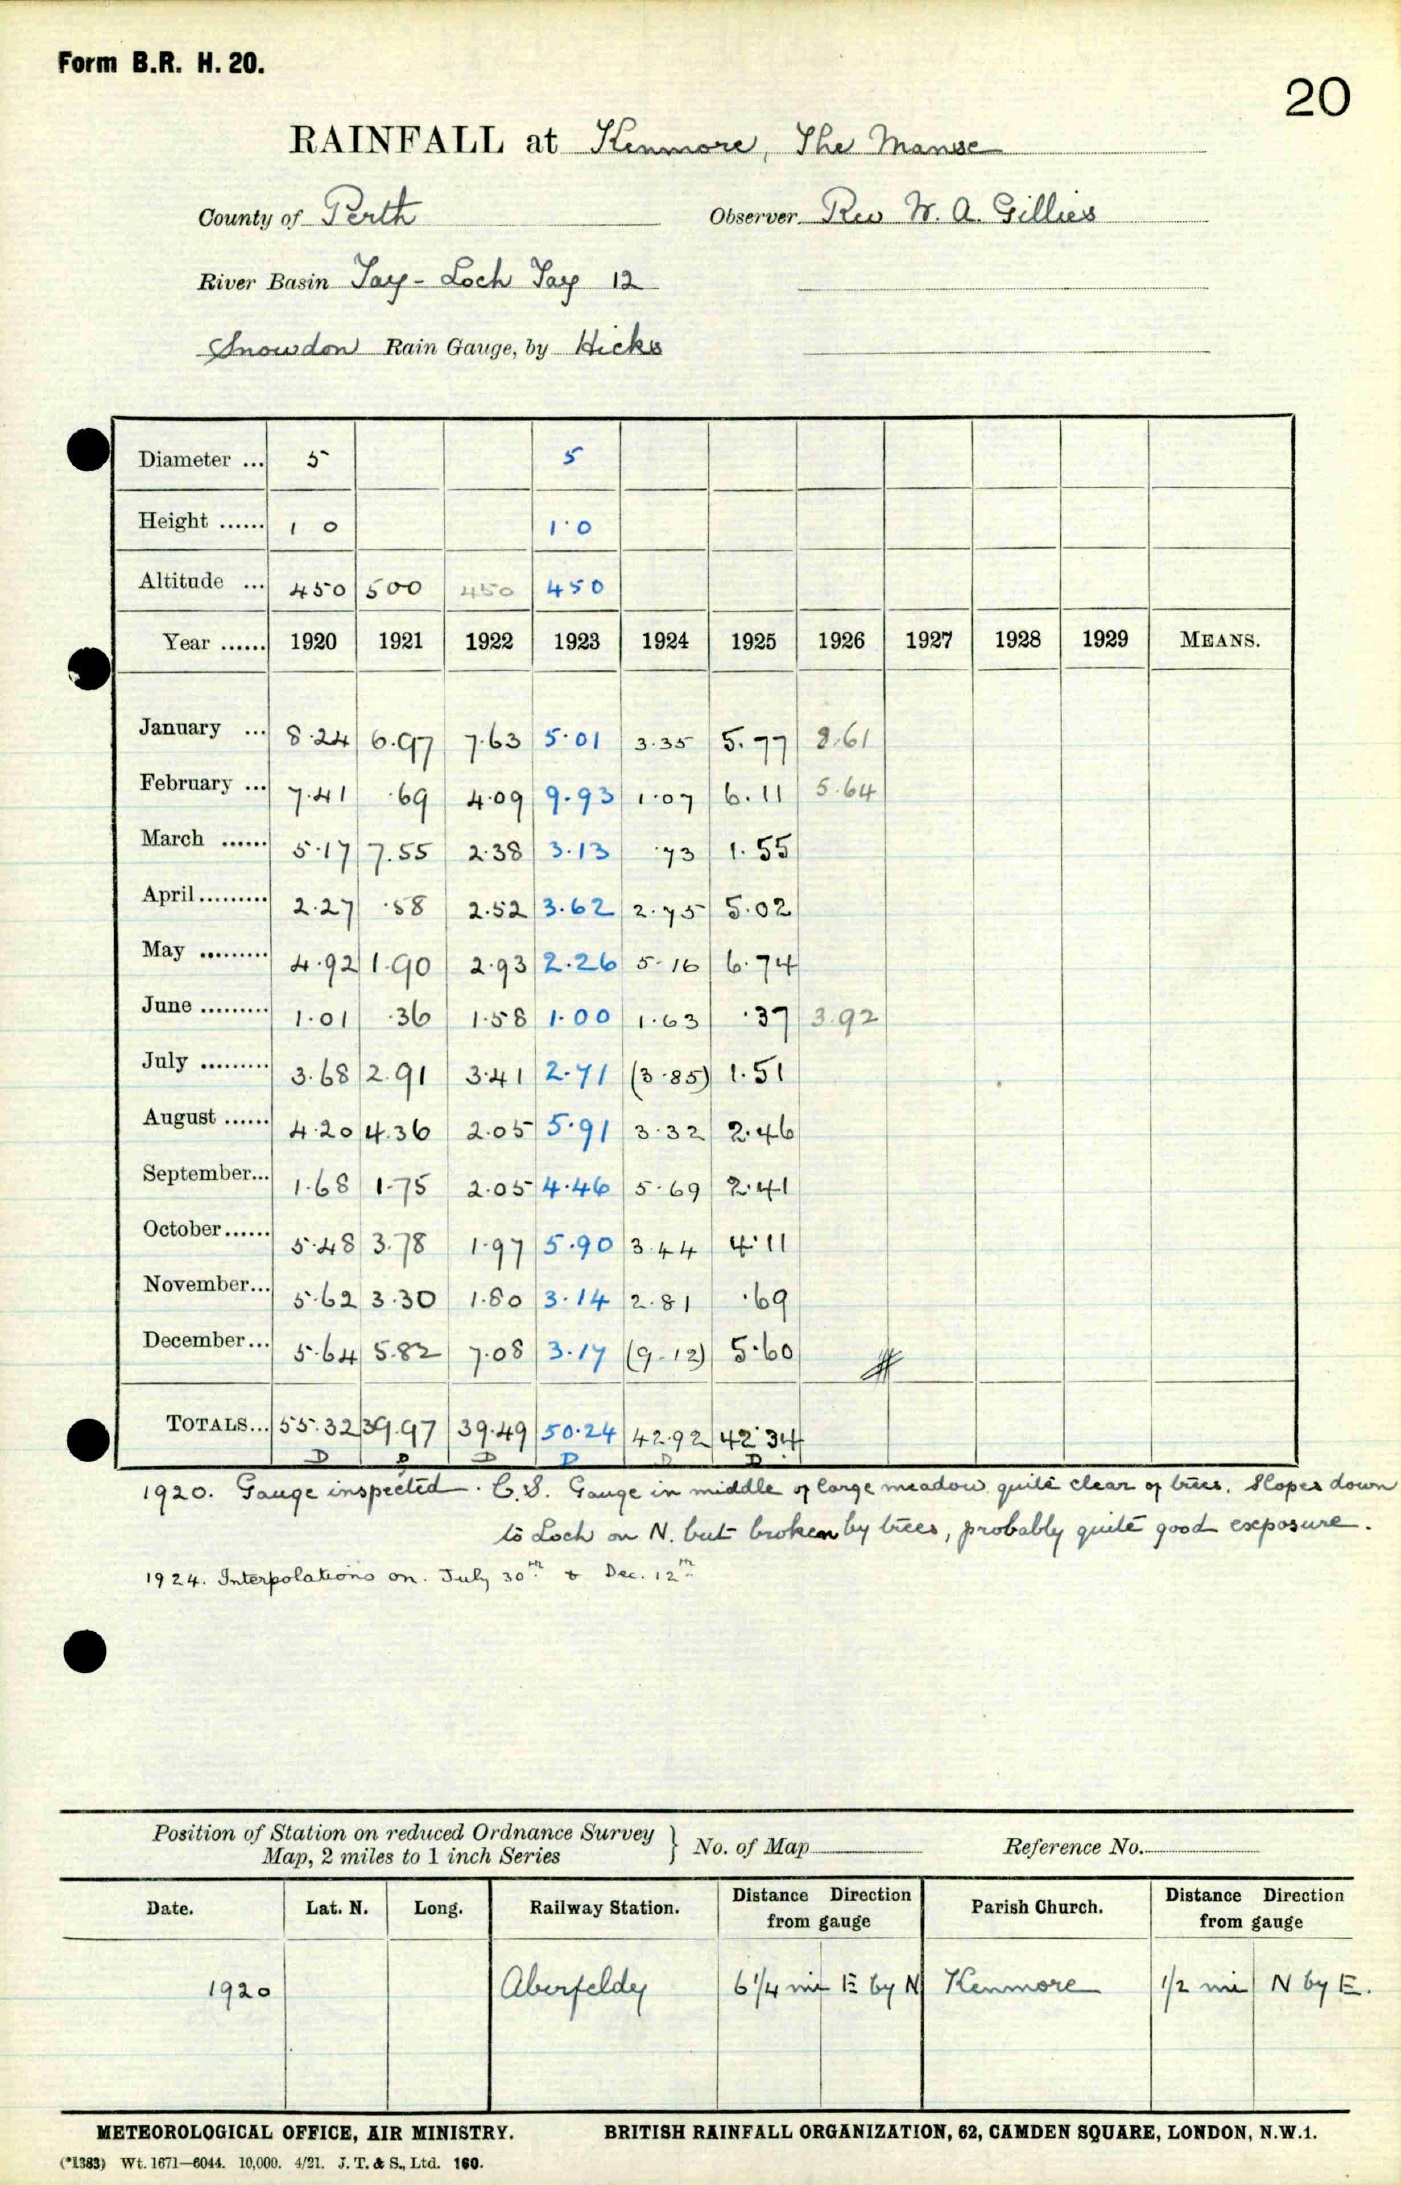 Form B.R. H. 20.
20
RAINFALL at Kenmore, The Manse
County of Perth Observer Rev W. A. Gillies
River Basin Tay - Loch Tay 12
Snowdon Rain Gauge, by Hicks
Diameter ... 5 5
Height ...... 1 0 1·0
Altitude ... 450 500 450 450
Year ...... 1920 1921 1922 1923 1924 1925 1926 1927 1928 1929 MEANS.
January ... 8·24 6·97 7·63 5·01 3·35 5·77 8·61
February ... 7·41 ·69 4·09 9·93 1·07 6·11 5·64
March ...... 5·17 7·55 2·38 3·13 ·73 1·55
April ......... 2·27 ·58 2·52 3·62 2·75 5·02
May ......... 4·92 1·90 2·93 2·26 5·16 6·74
June ......... 1·01 ·36 1·58 1·00 1·63 ·37 3·92
July ......... 3·68 2·91 3·41 2·71 (3·85) 1·51
August ...... 4·20 4·36 2·05 5·91 3·32 2·46
September... 1·68 1·75 2·05 4·46 5·69 2·41
October ...... 5·48 3·78 1·97 5·90 3·44 4·11
November... 5·62 3·30 1·80 3·14 2·81 ·69
December... 5·64 5·82 7·08 3·17 (9·12) 5·60
TOTALS... 55·32 39·97 39·49 50·24 42·92 42·34
D D D D D D
1920. Gauge inspected. C.S. Gauge in middle of large meadow quite clear of trees. Slopes down
to Loch on N. but broken by trees, probably quite good exposure.
1924. Interpolations on July 30th & Dec. 12th
Position of Station on reduced Ordnance Survey
Map, 2 miles to 1 inch Series } No. of Map Reference No.
Date. Lat. N. Long. Railway Station. Distance Direction from gauge Parish Church. Distance Direction from gauge
1920 Aberfeldy 6 1/4 mi E by N Kenmore 1/2 mi N by E.
METEOROLOGICAL OFFICE, AIR MINISTRY. BRITISH RAINFALL ORGANIZATION, 62, CAMDEN SQUARE, LONDON, N.W.1.
(*1383) Wt. 1671—6044. 10,000. 4/21. J. T. & S., Ltd. 160.